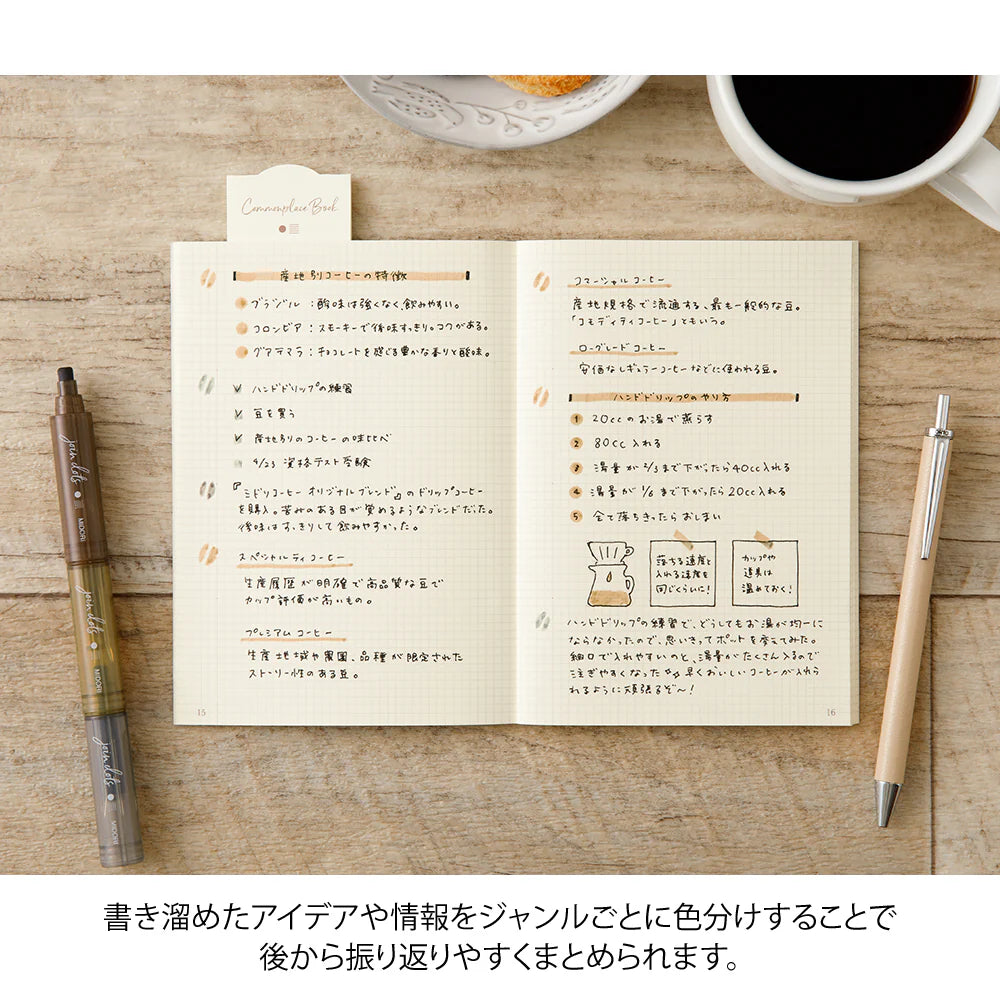 Commonplace Book
産地別コーヒーの特徴
ブラジル：酸味は強くなく、飲みやすい。
コロンビア：スモーキーで後味すっきり。コクがある。
グアテマラ：チョコレートを感じる豊かな香りと酸味。
ハンドドリップの練習
豆を買う
産地別のコーヒーの味比べ
4/23 資格テスト受験
『ミドリコーヒー オリジナルブレンド』のドリップコーヒー
を購入。苦みのある目が覚めるようなブレンドだった。
後味はすっきりして飲みやすかった。
スペシャルティコーヒー
生産履歴が明確で高品質な豆で
カップ評価が高いもの。
プレミアムコーヒー
生産地域や農園、品種が限定された
ストーリー性のある豆。
15
コマーシャルコーヒー
産地規格で流通する、最も一般的な豆。
「コモディティコーヒー」ともいう。
ローグレードコーヒー
安価なレギュラーコーヒーなどに使われる豆。
ハンドドリップのやり方
1 20ccのお湯で蒸らす
2 80cc入れる
3 湯量が2/3まで下がったら40cc入れる
4 湯量が1/6まで下がったら20cc入れる
5 全て落ちきったらおしまい
落ちる速度と
入れる速度を
同じくらいに!
カップや
道具は
温めておく!
ハンドドリップの練習で、どうしてもお湯が均一に
ならなかったので、思いきってポットを変えてみた。
細口で入れやすいのと、湯量がたくさん入るので
注ぎやすくなった 早くおいしいコーヒーが入れら
れるように頑張るぞ〜!
16
join dots
MIDORI
join dots
MIDORI
join dots
MIDORI
書き溜めたアイデアや情報をジャンルごとに色分けすることで
後から振り返りやすくまとめられます。